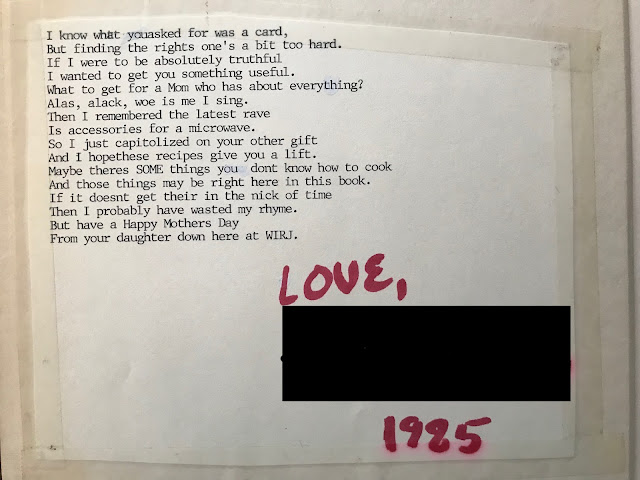 I know what youasked for was a card,
But finding the rights one's a bit too hard.
If I were to be absolutely truthful
I wanted to get you something useful.
What to get for a Mom who has about everything?
Alas, alack, woe is me I sing.
Then I remembered the latest rave
Is accessories for a microwave.
So I just capitolized on your other gift
And I hopethese recipes give you a lift.
Maybe theres SOME things you dont know how to cook
And those things may be right here in this book.
If it doesnt get their in the nick of time
Then I probably have wasted my rhyme.
But have a Happy Mothers Day
From your daughter down here at WIRJ.
LOVE,
1985